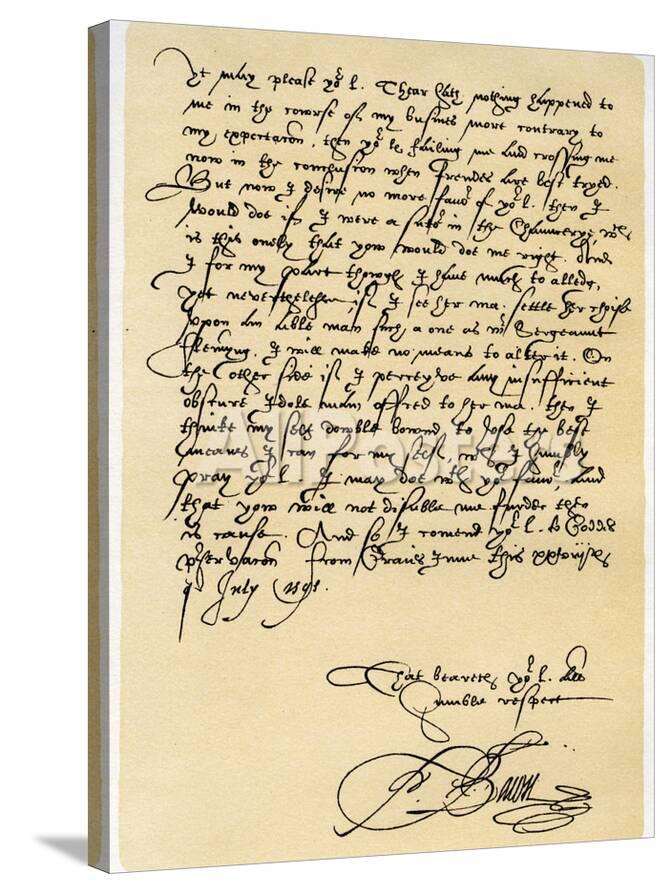 Yt may please yor l. Thear hath nothing happened to
me in the cowrse of my busines more contrary to
my expectacon, then yor ls failing me and crossing me
now in the conclusion when frendes are best tryed.
But now I desire no more favor of yor l. then I
would doe if I were a sutor in the Chauncerye, wch
is this onely that yow would doe me right. And
I for my part thowgh I have much to alledg,
yet neverthelesse, if I see her ma. settle her choise
upon an able man such a one as mr Sergeaunt
Fleming, I will make no means to alter it. On
the other side if I perceyve any insufficient
obscure Idole man offred to her ma. then I
think my self dowble bownd to use the best
means I can for my self, wch I humbly
pray yor l. I may doe wth yor favor, and
that yow will not disable me furder then
is cause. And so I comend yor l. to Goddes
preservacon from Graies Inne this
of July 1595.
That beareth yor l. all
humble respect
F. Bacon
AllPosters